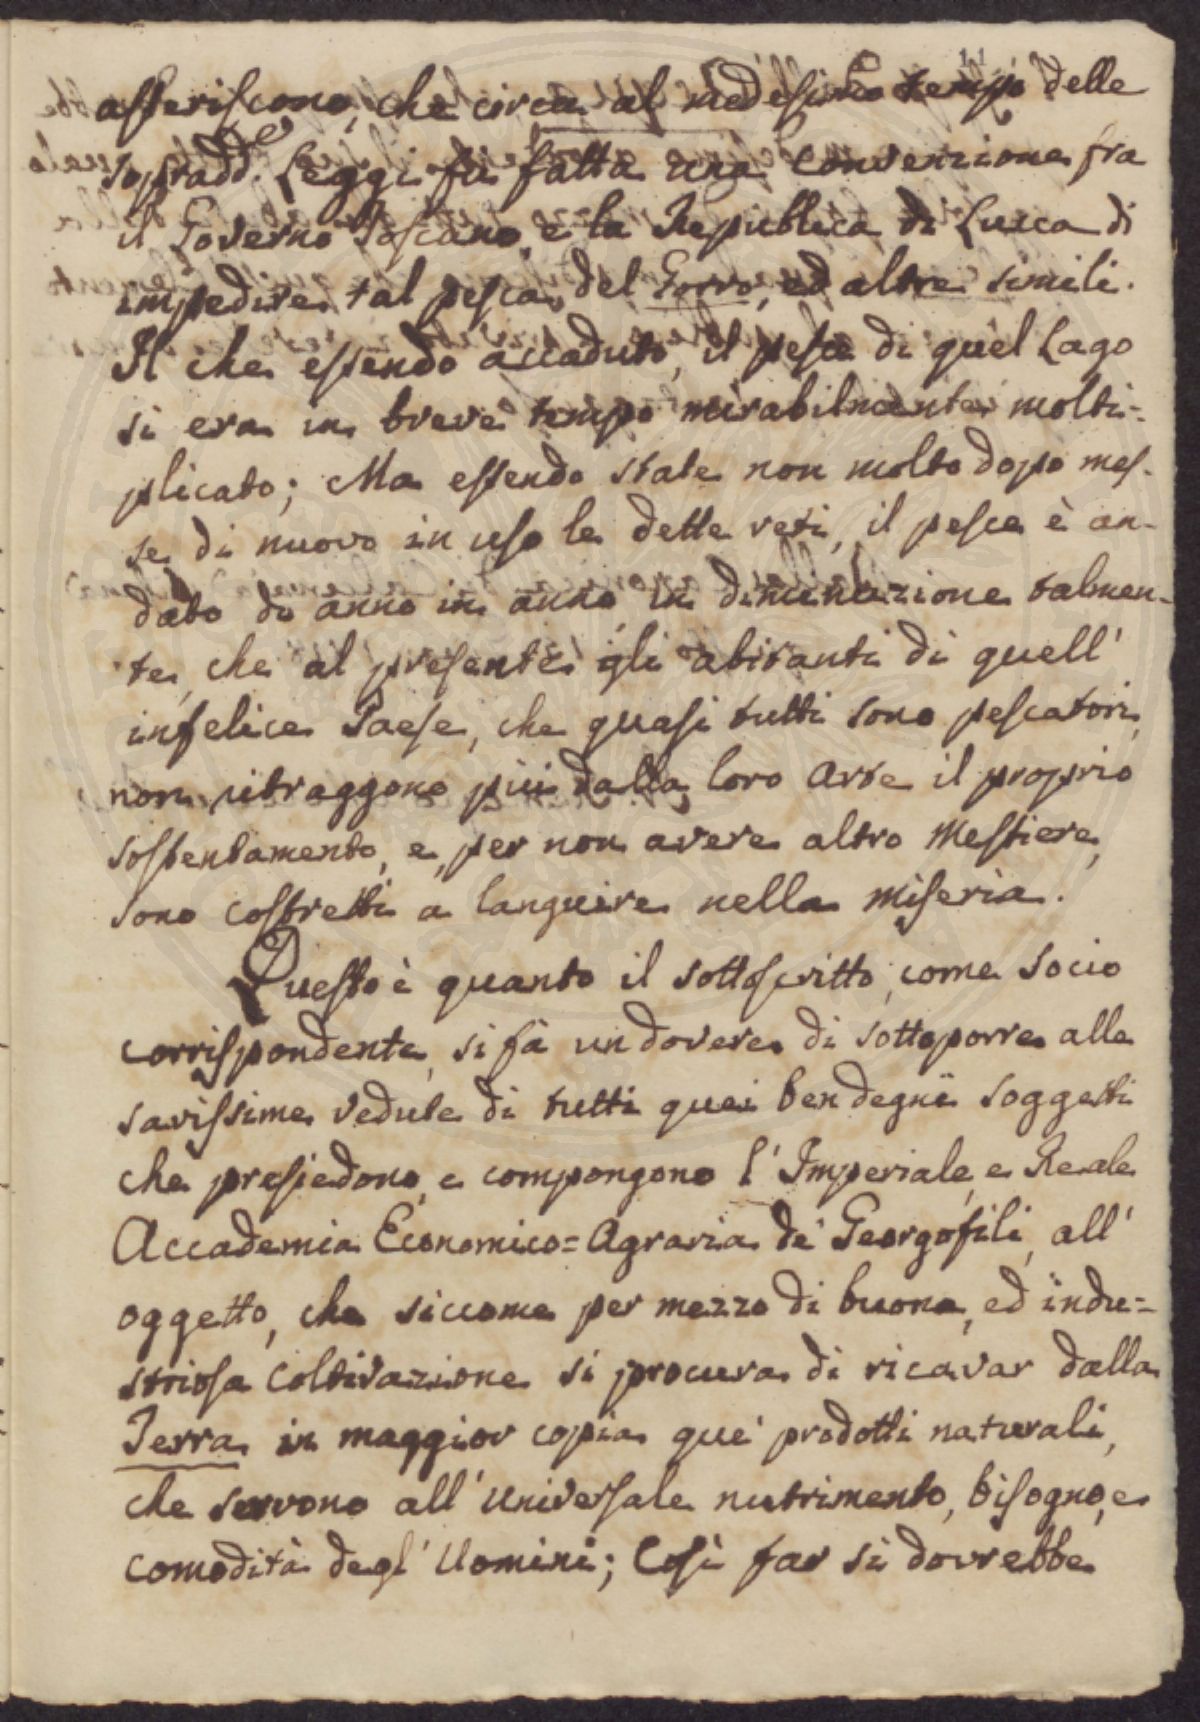 11
asseriscono, che circa al medesimo tempo delle
sopradd.e Leggi fù fatta una convenzione fra
il Governo Toscano, e la Republica di Lucca di
impedire tal pesca del Gorro, ed altre simili.
Il che essendo accaduto, il pesce di quel Lago
si era in breve tempo mirabilmente molti-
plicato; Ma essendo state non molto dopo mes-
se di nuovo in uso le dette reti, il pesce è an-
dato di anno in anno in diminuzione talmen-
te, che al presente gli abitanti di quell'
infelice Paese, che quasi tutti sono pescatori,
non ritraggono più dalla loro Arte il proprio
sostentamento, e, per non avere altro Mestiere,
sono costretti a languire nella miseria.
Questo è quanto il sottoscritto, come Socio
corrispondente, si fà un dovere di sottoporre alle
savissime vedute di tutti quei ben degni soggetti
che presiedono, e compongono l'Imperiale, e Reale
Accademia Economico=Agraria de' Georgofili, all'
oggetto, che siccome per mezzo di buona, ed indu=
striosa coltivazione si procura di ricavar dalla
Terra in maggior copia quei prodotti naturali,
che servono all'universale nutrimento, bisogno, e
comodità degl'Uomini; Così far si dovrebbe